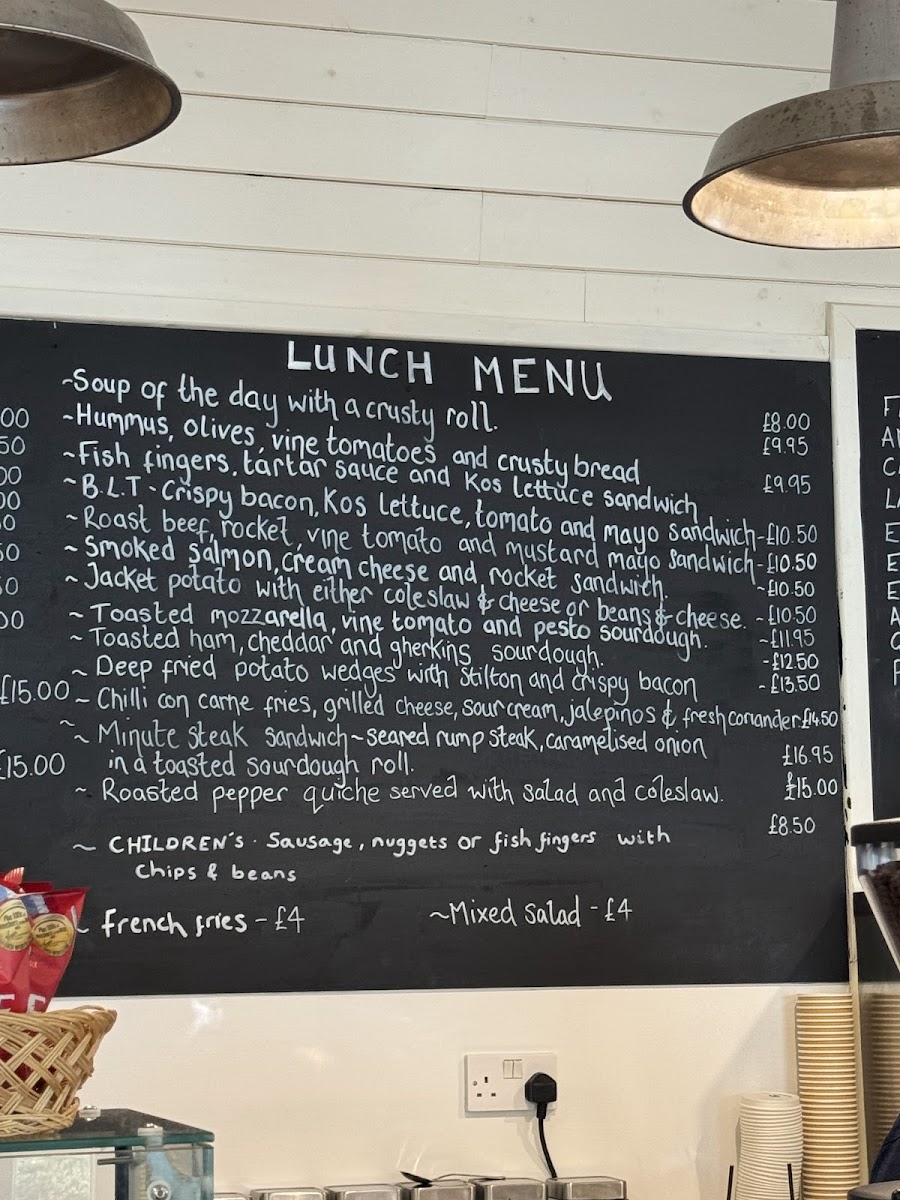 LUNCH MENU
~Soup of the day with a crusty roll. £8.00
~Hummus, olives, vine tomatoes and crusty bread £9.95
~Fish fingers, tartar sauce and Kos lettuce sandwich £9.95
~B.L.T - Crispy bacon, Kos lettuce, tomato and mayo sandwich -£10.50
~Roast beef, rocket, vine tomato and mustard mayo sandwich -£10.50
~Smoked salmon, cream cheese and rocket sandwich. -£10.50
~Jacket potato with either coleslaw & cheese or beans & cheese. -£10.50
~Toasted mozzarella, vine tomato and pesto sourdough. -£11.95
~Toasted ham, cheddar and gherkins sourdough. -£12.50
~Deep fried potato wedges with stilton and crispy bacon -£13.50
~Chilli con carne fries, grilled cheese, sour cream, jalepinos & fresh coriander £14.50
~Minute steak sandwich~seared rump steak, caramelised onion £16.95
in a toasted sourdough roll.
~Roasted pepper quiche served with salad and coleslaw. £15.00
~CHILDREN'S. Sausage, nuggets or fish fingers with £8.50
chips & beans
~french fries - £4
~Mixed salad - £4
£15.00
£15.00